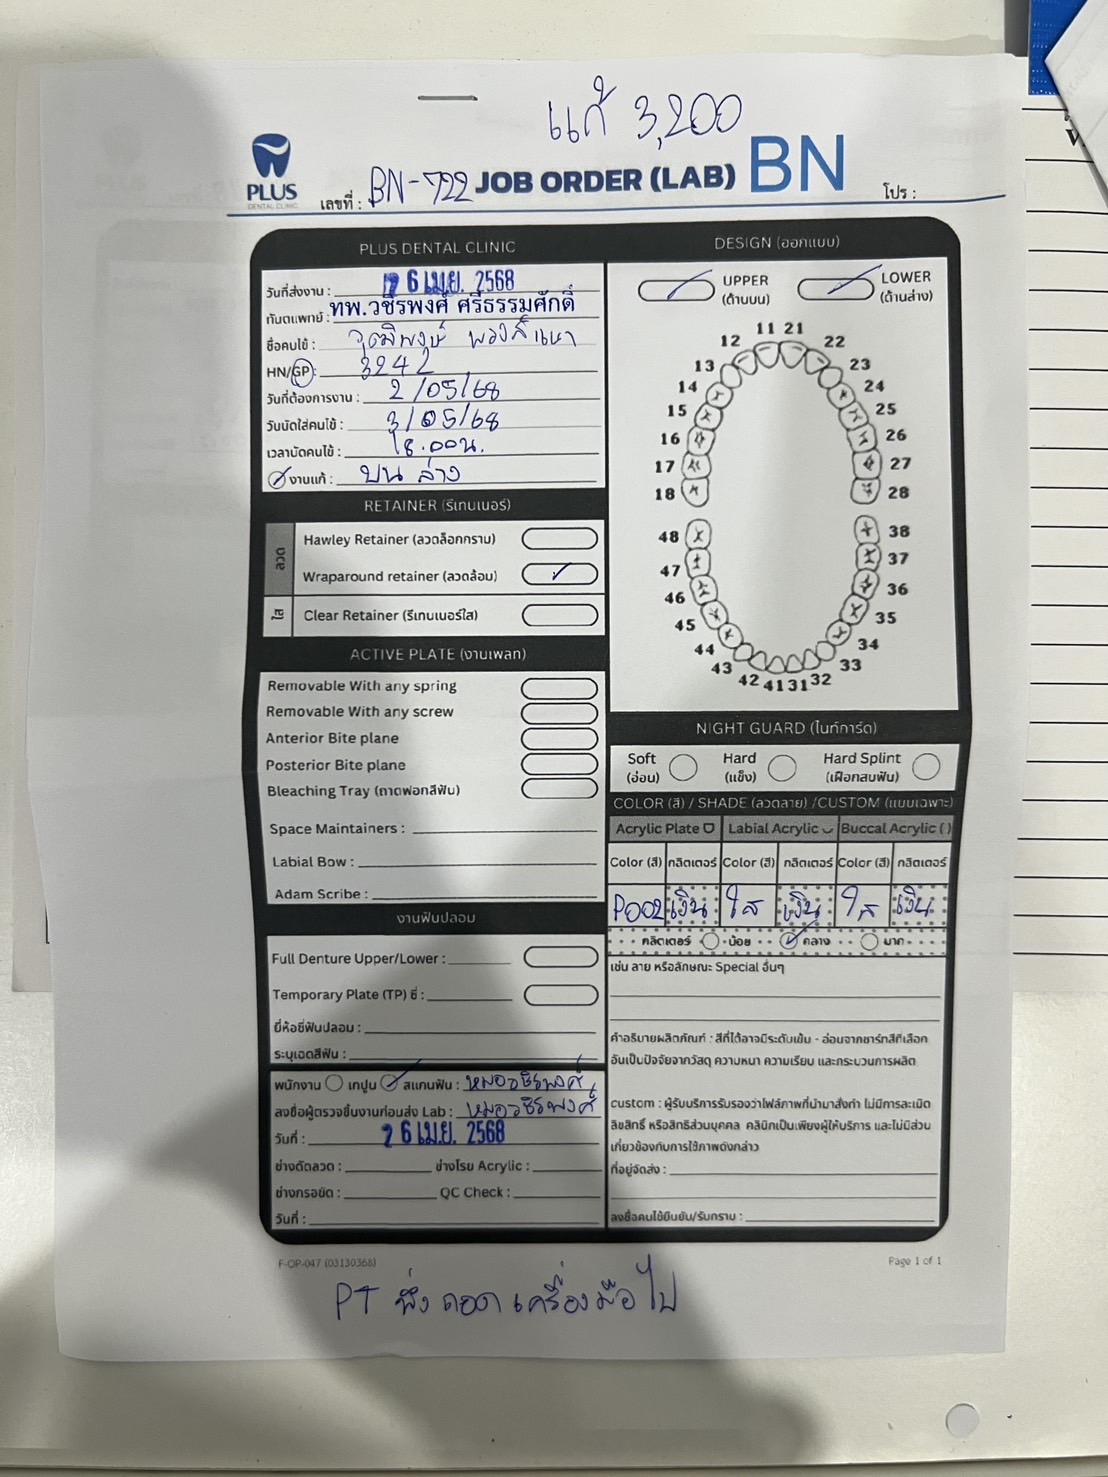 แก้ 3,200
PLUS
DENTAL CLINIC
เลขที่ : BN-722 JOB ORDER (LAB) BN โปร :
PLUS DENTAL CLINIC
วันที่ส่งงาน : 26 เม.ย. 2568
ทันตแพทย์ : ทพ.วชิรพงศ์ ศรีธรรมศักดิ์
ชื่อคนไข้ : วุฒิพงษ์
HN/GP : 3242
วันที่ต้องการงาน : 2/05/68
วันนัดใส่คนไข้ : 3/05/68
เวลานัดคนไข้ : 18.00น.
งานแก้ : บน ล่าง
RETAINER (รีเทนเนอร์)
ลวด
Hawley Retainer (ลวดล็อกกราม)
Wraparound retainer (ลวดล้อม)
ใส
Clear Retainer (รีเทนเนอร์ใส)
ACTIVE PLATE (งานเพลท)
Removable With any spring
Removable With any screw
Anterior Bite plane
Posterior Bite plane
Bleaching Tray (ถาดฟอกสีฟัน)
Space Maintainers :
Labial Bow :
Adam Scribe :
งานฟันปลอม
Full Denture Upper/Lower :
Temporary Plate (TP) ซี่ :
ยี่ห้อซี่ฟันปลอม :
ระบุเฉดสีฟัน :
พนักงาน เทปูน สแกนฟัน : หมอวชิรพงศ์
ลงชื่อผู้ตรวจชิ้นงานก่อนส่ง Lab : หมอวชิรพงศ์
วันที่ : 26 เม.ย. 2568
ช่างดัดลวด : ช่างโรย Acrylic :
ช่างกรอขัด : QC Check :
วันที่ :
DESIGN (ออกแบบ)
UPPER
(ด้านบน)
LOWER
(ด้านล่าง)
11 21
12 22
13 23
14 24
15 25
16 26
17 27
18 28
48 38
47 37
46 36
45 35
44 34
43 33
42 41 31 32
NIGHT GUARD (ไนท์การ์ด)
Soft
(อ่อน)
Hard
(แข็ง)
Hard Splint
(เฝือกสบฟัน)
COLOR (สี) / SHADE (ลวดลาย) /CUSTOM (แบบเฉพาะ)
Acrylic Plate Labial Acrylic Buccal Acrylic ( )
Color (สี) กลิตเตอร์ Color (สี) กลิตเตอร์ Color (สี) กลิตเตอร์
P002 เงิน ใส เงิน ใส เงิน
กลิตเตอร์ น้อย กลาง มาก
เช่น ลาย หรือลักษณะ Special อื่นๆ
คำอธิบายผลิตภัณฑ์ : สีที่ได้อาจมีระดับเข้ม - อ่อนจากชาร์ทสีที่เลือก
อันเป็นปัจจัยจากวัสดุ ความหนา ความเรียบ และกระบวนการผลิต
custom : ผู้รับบริการรับรองว่าไฟล์ภาพที่นำมาสั่งทำ ไม่มีการละเมิด
ลิขสิทธิ์ หรือสิทธิส่วนบุคคล คลินิกเป็นเพียงผู้ให้บริการ และไม่มีส่วน
เกี่ยวข้องกับการใช้ภาพดังกล่าว
ที่อยู่จัดส่ง :
ลงชื่อคนไข้ยืนยัน/รับทราบ :
F-OP-047 (03130368)
Page 1 of 1
PT พึ่ง ถอด เครื่องมือ ไป